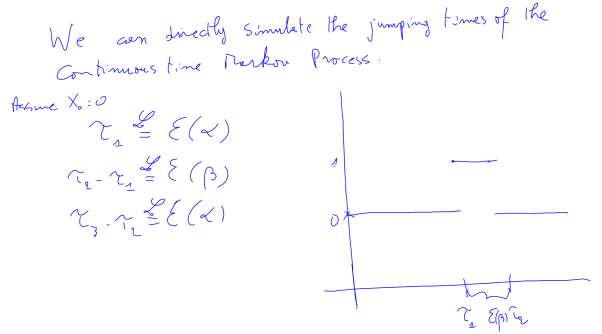 We can directly simulate the jumping times of the
Continuous time Markov Process.
Assume X₀=0
τ₁ ℒ= ℰ(α)
τ₂-τ₁ ℒ= ℰ(β)
τ₃-τ₂ ℒ= ℰ(α)
1
0
τ₁ ℰ(β) τ₂